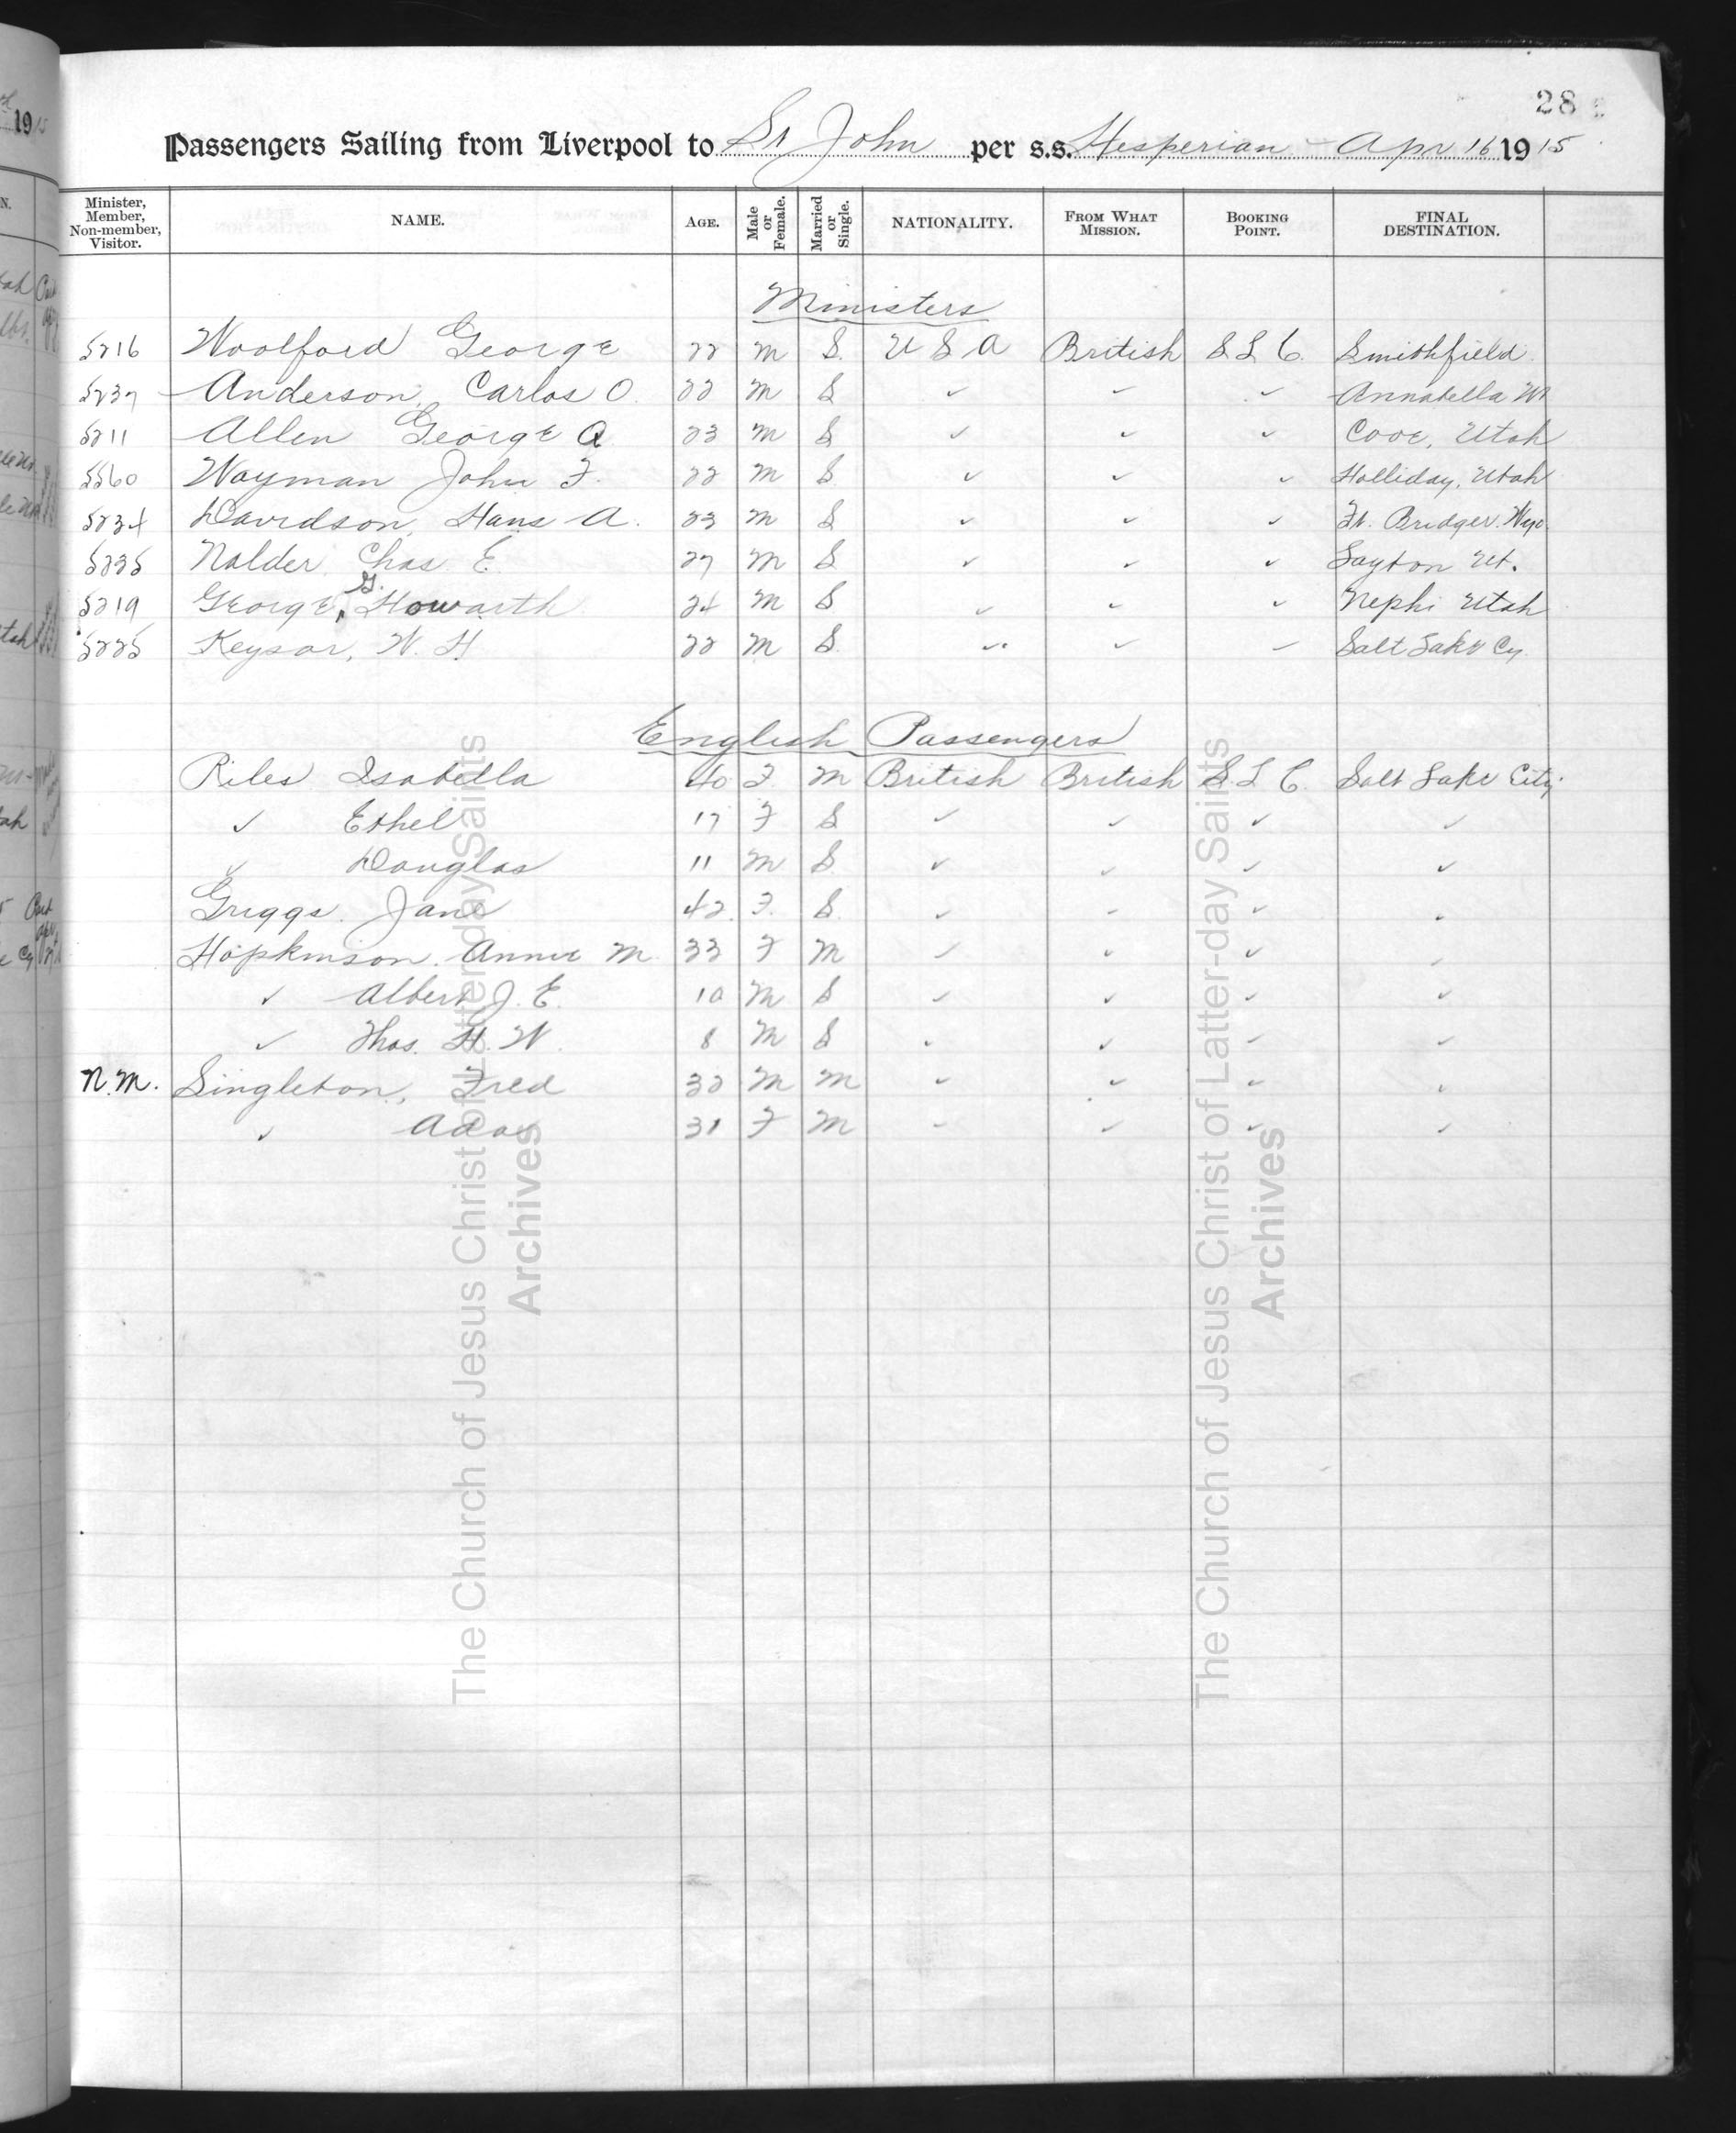 28
Passengers Sailing from Liverpool to St John per s.s. Hesperian - Apr 16 1915
Minister, Member, Non-member, Visitor. NAME. AGE. Male or Female. Married or Single. NATIONALITY. FROM WHAT MISSION. BOOKING POINT. FINAL DESTINATION.
Ministers
5216 Woolford George 22 M S. U S A British S L C. Smithfield
5237 Anderson, Carlos O. 22 M S ✓ ✓ ✓ Annabella Ut
5211 Allen George A 23 M S ✓ ✓ ✓ Cove, Utah
5560 Wayman John F. 22 M S ✓ ✓ ✓ Holliday, Utah
5234 Davidson, Hans A. 23 M S ✓ ✓ ✓ Ft. Bridger. Wyo
5225 Nalder, Chas. E. 27 M S ✓ ✓ ✓ Layton Ut.
5219 George, G. Howarth 24 M S ✓ ✓ ✓ Nephi Utah
5225 Keysar, W. H 22 M S. ✓ ✓ - Salt Lake Cy.
English Passengers
Riles Isabella 40 F M British British S. L C. Salt Lake City
✓ Ethel 17 F S ✓ ✓ ✓ ✓
✓ Douglas 11 M S ✓ ✓ ✓ ✓
Griggs. Jane 42. F. S. ✓ ✓ ✓ ✓
Hopkinson. Annie M. 33 F M ✓ ✓ ✓ ✓
✓ Albert J. E. 10 M S ✓ ✓ ✓ ✓
✓ Thos. H. W. 8 M S ✓ ✓ ✓ ✓
N.M. Singleton, Fred 32 M M ✓ ✓ ✓ ✓
✓ Ada 31 F M ✓ ✓ ✓ ✓
The Church of Jesus Christ of Latter-day Saints
Archives
The Church of Jesus Christ of Latter-day Saints
Archives